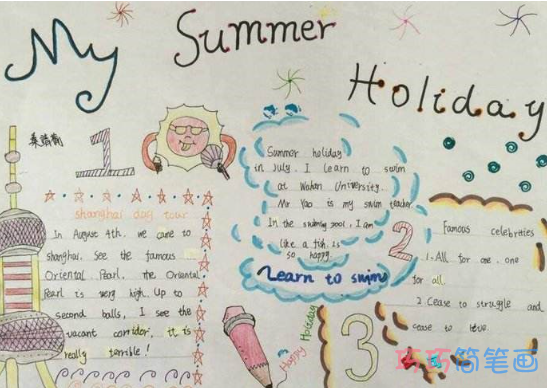 My Summer Holiday
1
shanghai day tour
In August 4th, we came to
shanghai. See the famous
Oriental Pearl, the Oriental
Pearl is very high. Up to
second balls, I see the
vacant corridor, it is
really terrible!
Summer holiday
in July, I learn to swim
at Wuhan University.
Mr Yao is my swim teacher.
In the swimming pool, I am
like a fish, is
so happy.
Learn to swims
2
Famous celebrities
1. All for one, one
for all.
2 Cease to struggle and
cease to live.
3
Happy Holiday
巧巧简笔画